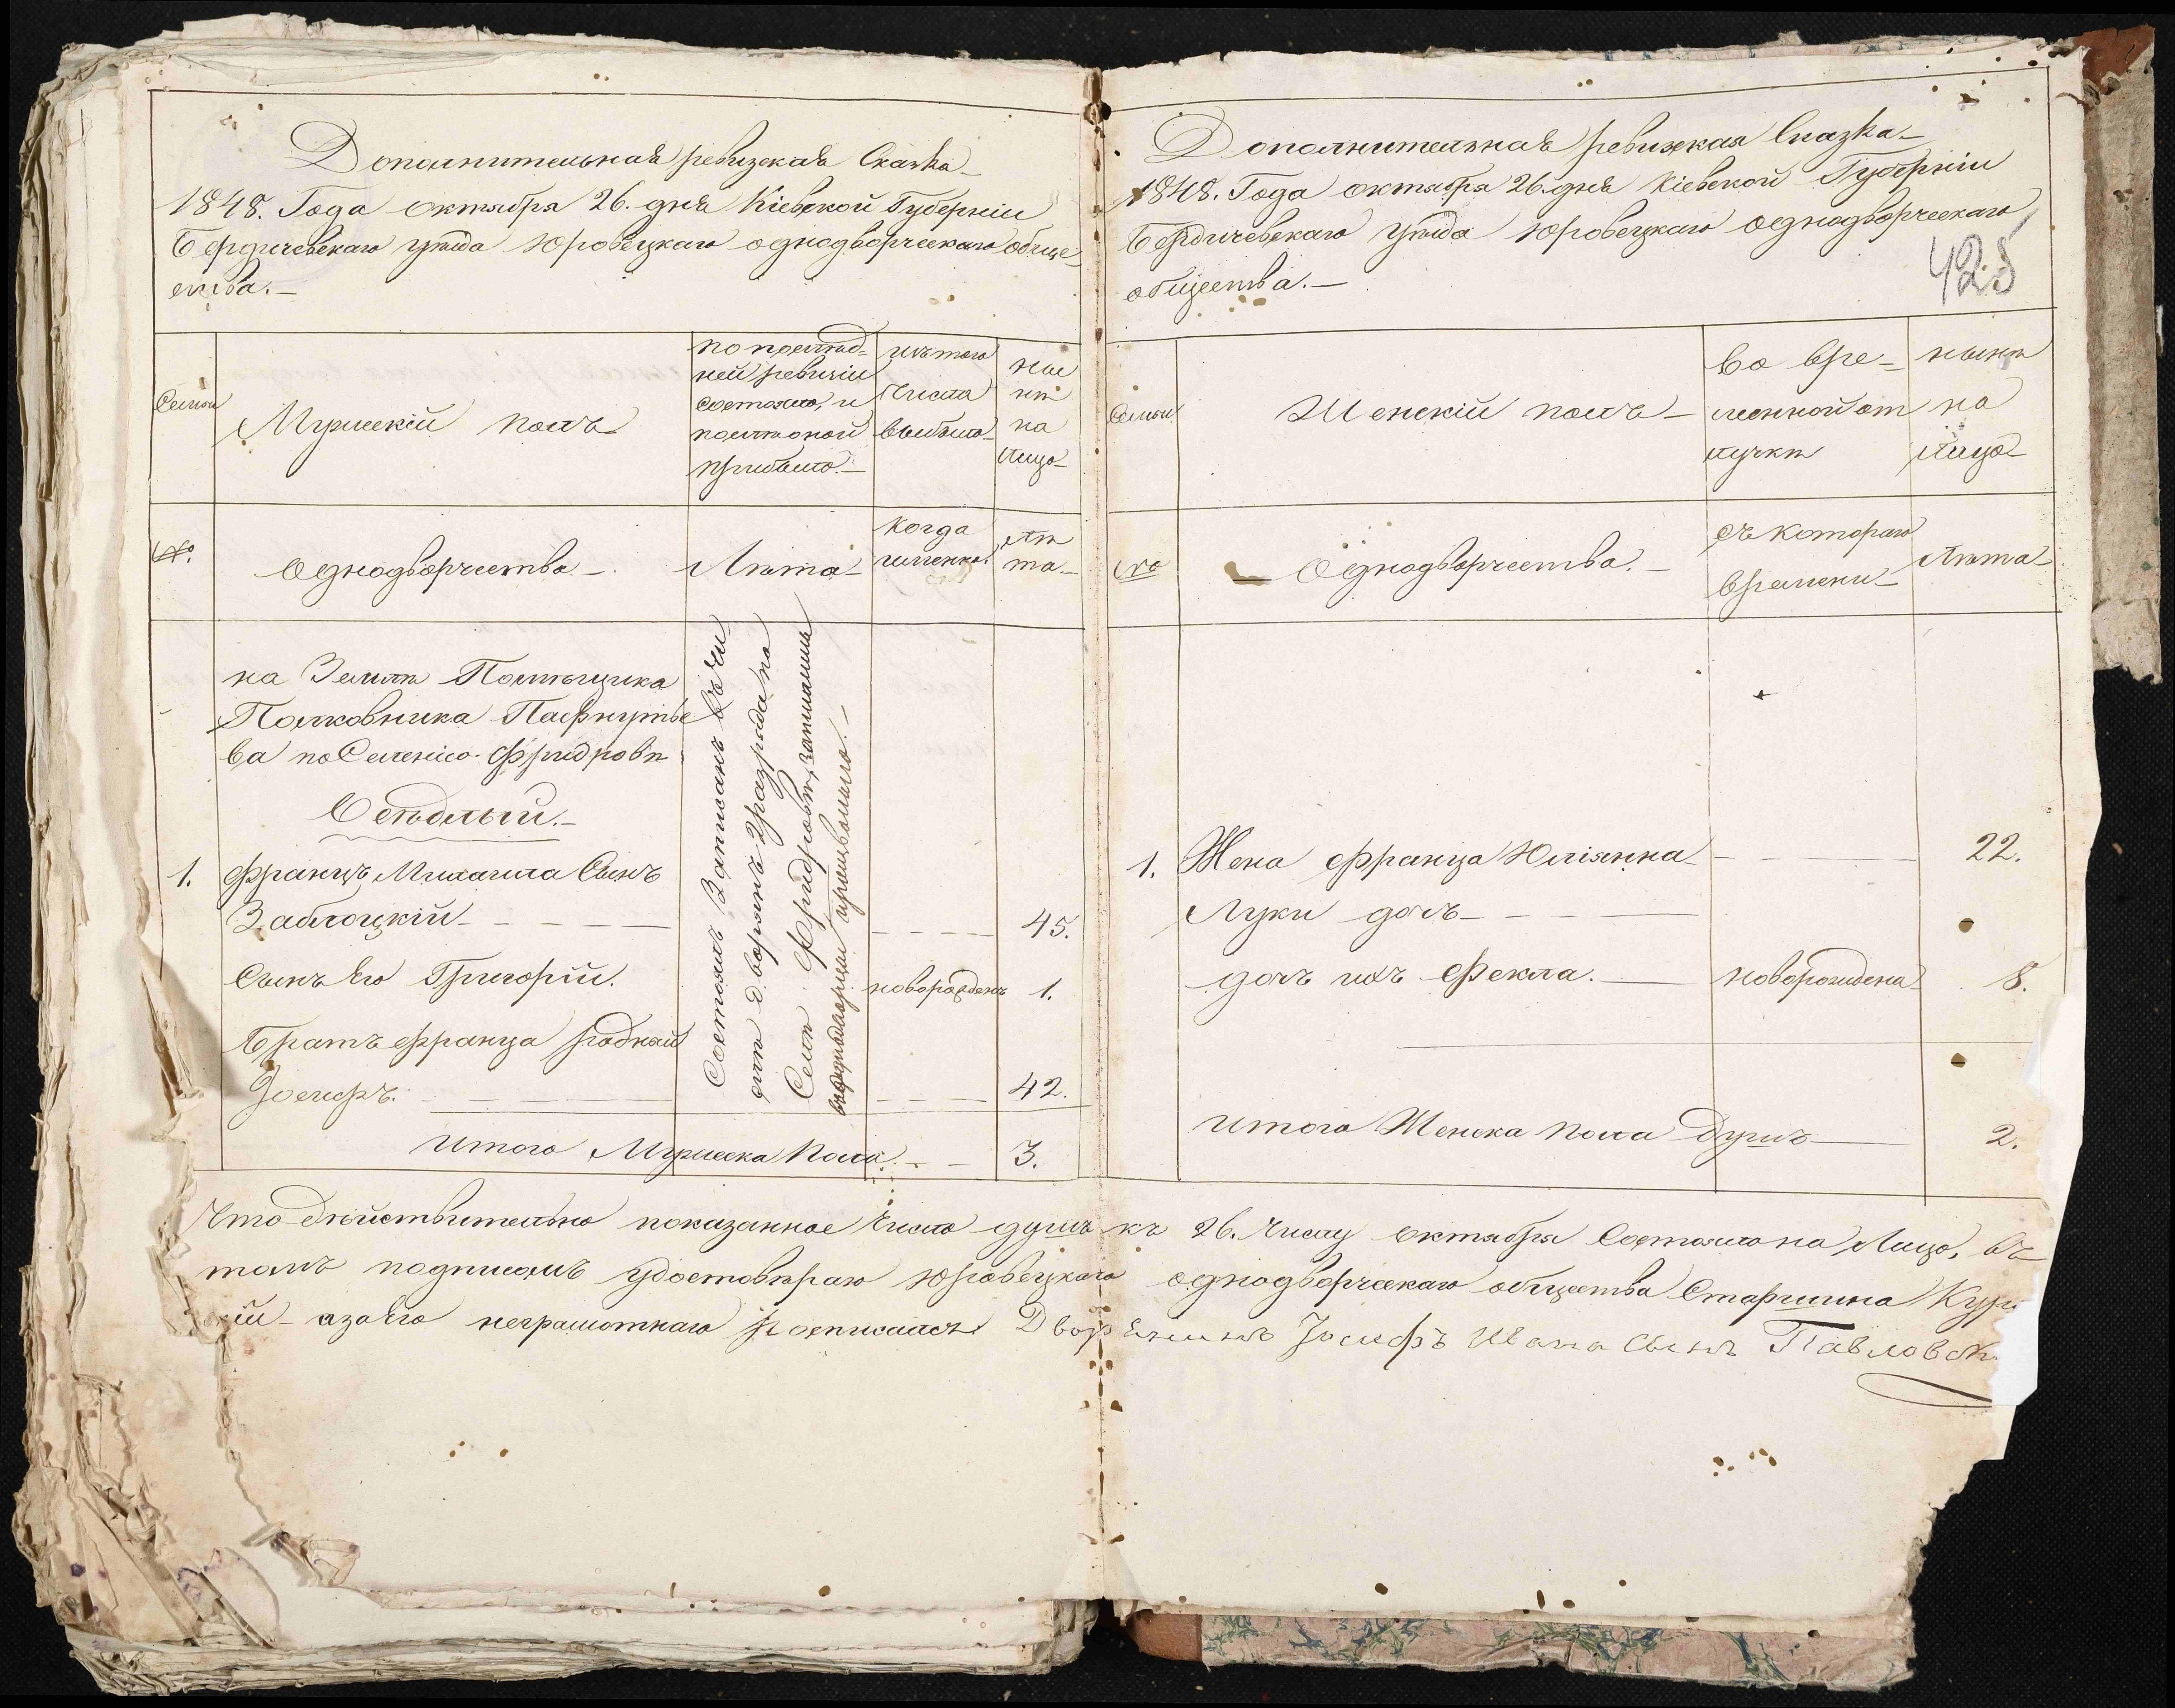 Дополнительная ревизская Сказка
1848. Года октября 26. дня Кіевской Губерніи
Бердичевскаго уѣзда Юровецкаго однодворческаго обще
ства.
Семьи
Мужескій полъ
по послѣд-
ней ревизіи
состояло, и
послѣ оной
прибыло.
изъ того
числа
выбыло
ны
нѣ
на
лицо
№.
Однодворчества
Лѣта
когда
именно.
лѣ
та
на Землѣ Помѣщика
Полковника Пафнутье
ва по Селенію Фридровѣ
Осѣдлый.
1. Францъ Михаила Сынъ
Заблоцкій 45.
Сынъ Его Григорій. новорожденъ 1.
Братъ Франца родный
Іосифъ. 42.
Состоялъ Записанъ въ чи
слѣ Дворянъ 2 разряда по
Селѣ Фридровѣ,
Итого Мужеска Пола 3.
Дополнительная ревизская Сказка
1848. Года октября 26. дня Кіевской Губерніи
Бердичевскаго уѣзда Юровецкаго однодворческаго
общества.
425
Семьи
Женскій полъ
во вре-
менной от
лучкѣ
нынѣ
на
лицо
№
Однодворчества.
съ котораго
времени
Лѣта
1. Жена Франца Юліянна 22.
Луки дочь
дочь ихъ Фекла. новорождена 8.
Итого Женска пола Душъ 2.
Что дѣйствительно показанное число душъ къ 26. числу октября Состояло на Лицо, въ
томъ подписомъ удостовѣряю Юровецкаго однодворческаго общества Старшина
а за Его неграмотнаго росписался Дворянинъ Іосифъ Ивана Сынъ Павловск